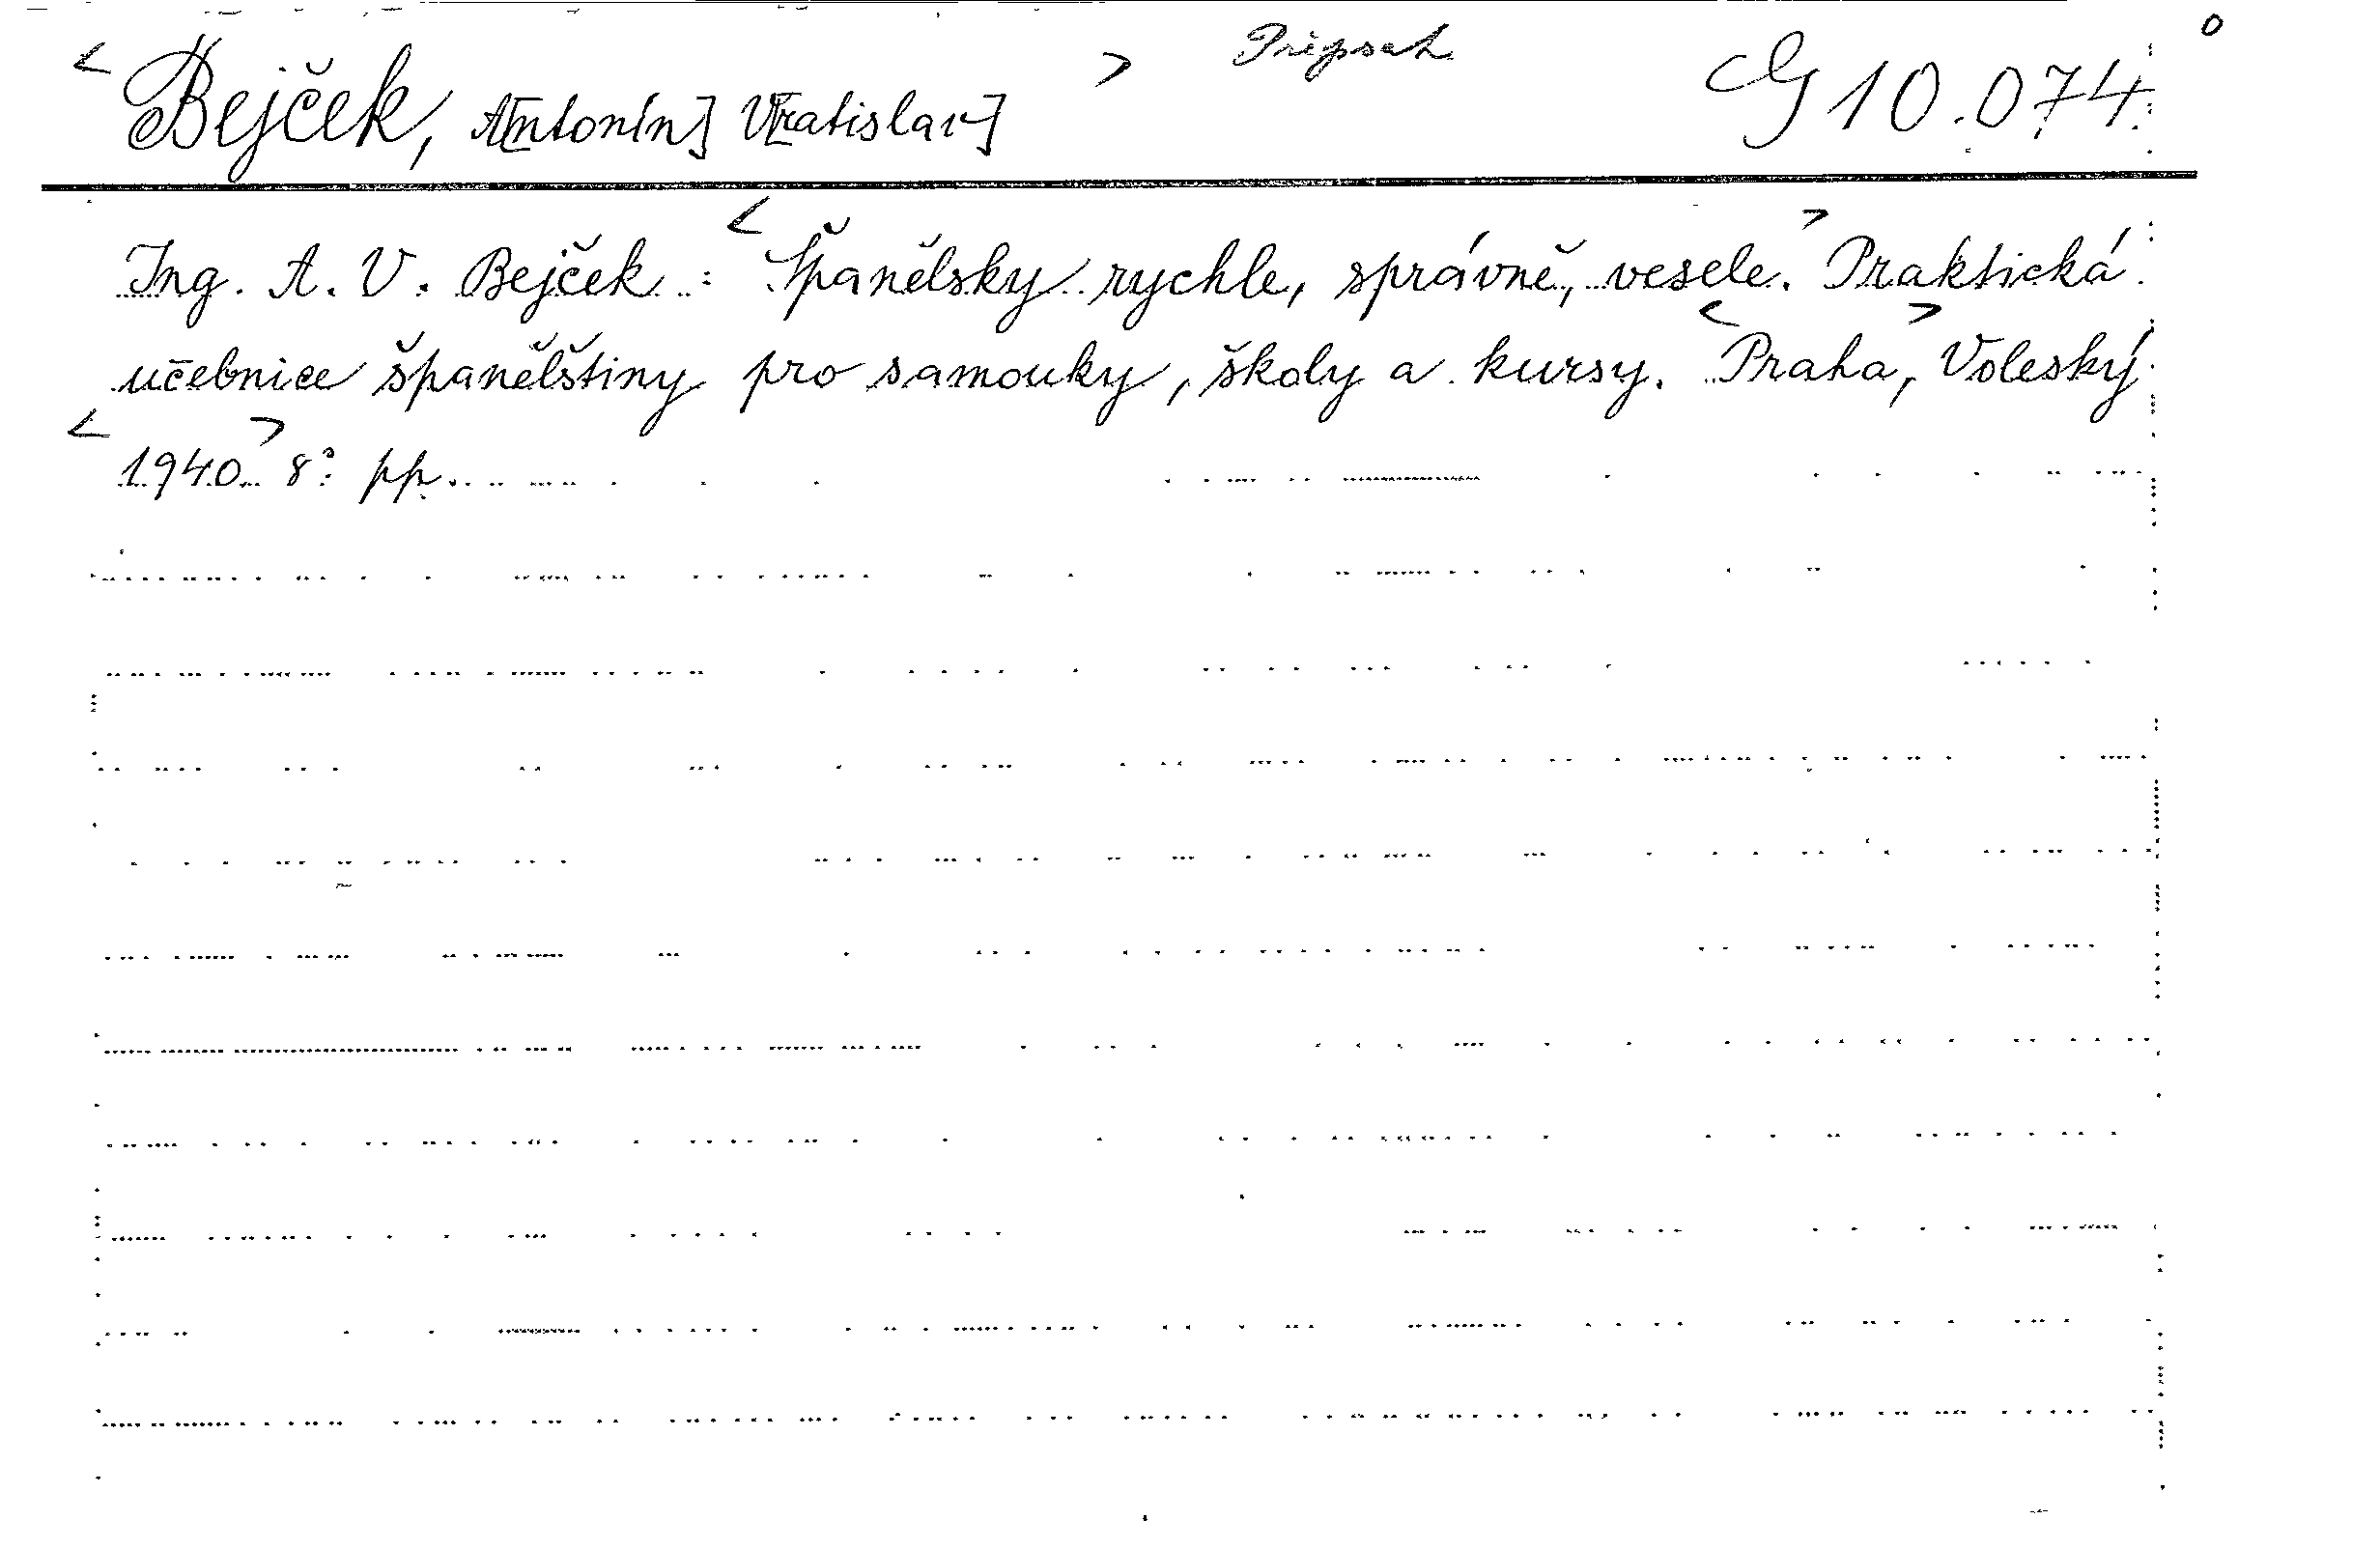 <Bejček, A[ntonín] V[ratislav]> Přepsat G 10.074
Ing. A. V. Bejček: <Španělsky rychle, správně, vesele.> Praktická
učebnice španělštiny pro samouky, školy a kursy. <Praha,> Voleský
<1940> 8° pp.